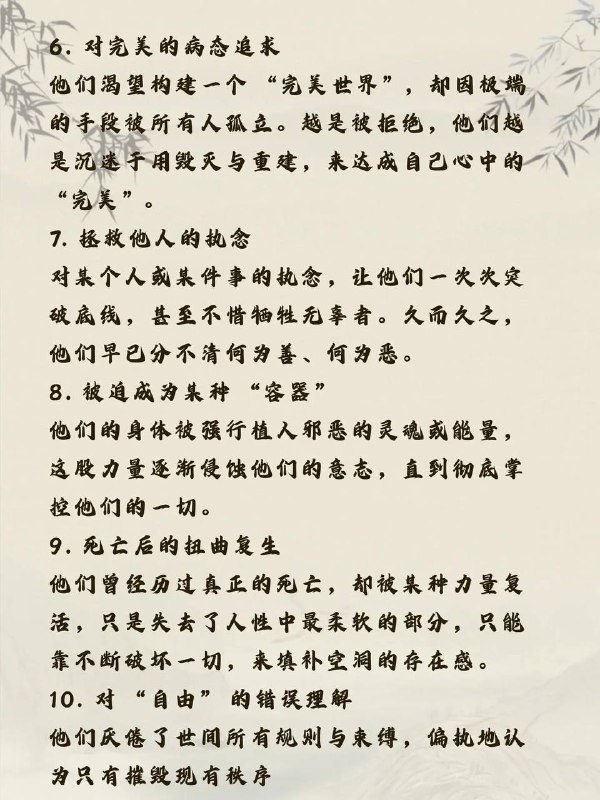 6. 对完美的病态追求
他们渴望构建一个“完美世界”，却因极端
的手段被所有人孤立。越是被拒绝，他们越
是沉迷于用毁灭与重建，来达成自己心中的
“完美”。
7. 拯救他人的执念
对某个人或某件事的执念，让他们一次次突
破底线，甚至不惜牺牲无辜者。久而久之，
他们早已分不清何为善、何为恶。
8. 被迫成为某种“容器”
他们的身体被强行植人邪恶的灵魂或能量，
这股力量逐渐侵蚀他们的意志，直到彻底掌
控他们的一切。
9. 死亡后的扭曲复生
他们曾经历过真正的死亡，却被某种力量复
活，只是失去了人性中最柔软的部分，只能
靠不断破坏一切，来填补空洞的存在感。
10. 对“自由”的错误理解
他们厌倦了世间所有规则与束缚，偏执地认
为只有摧毁现有秩序